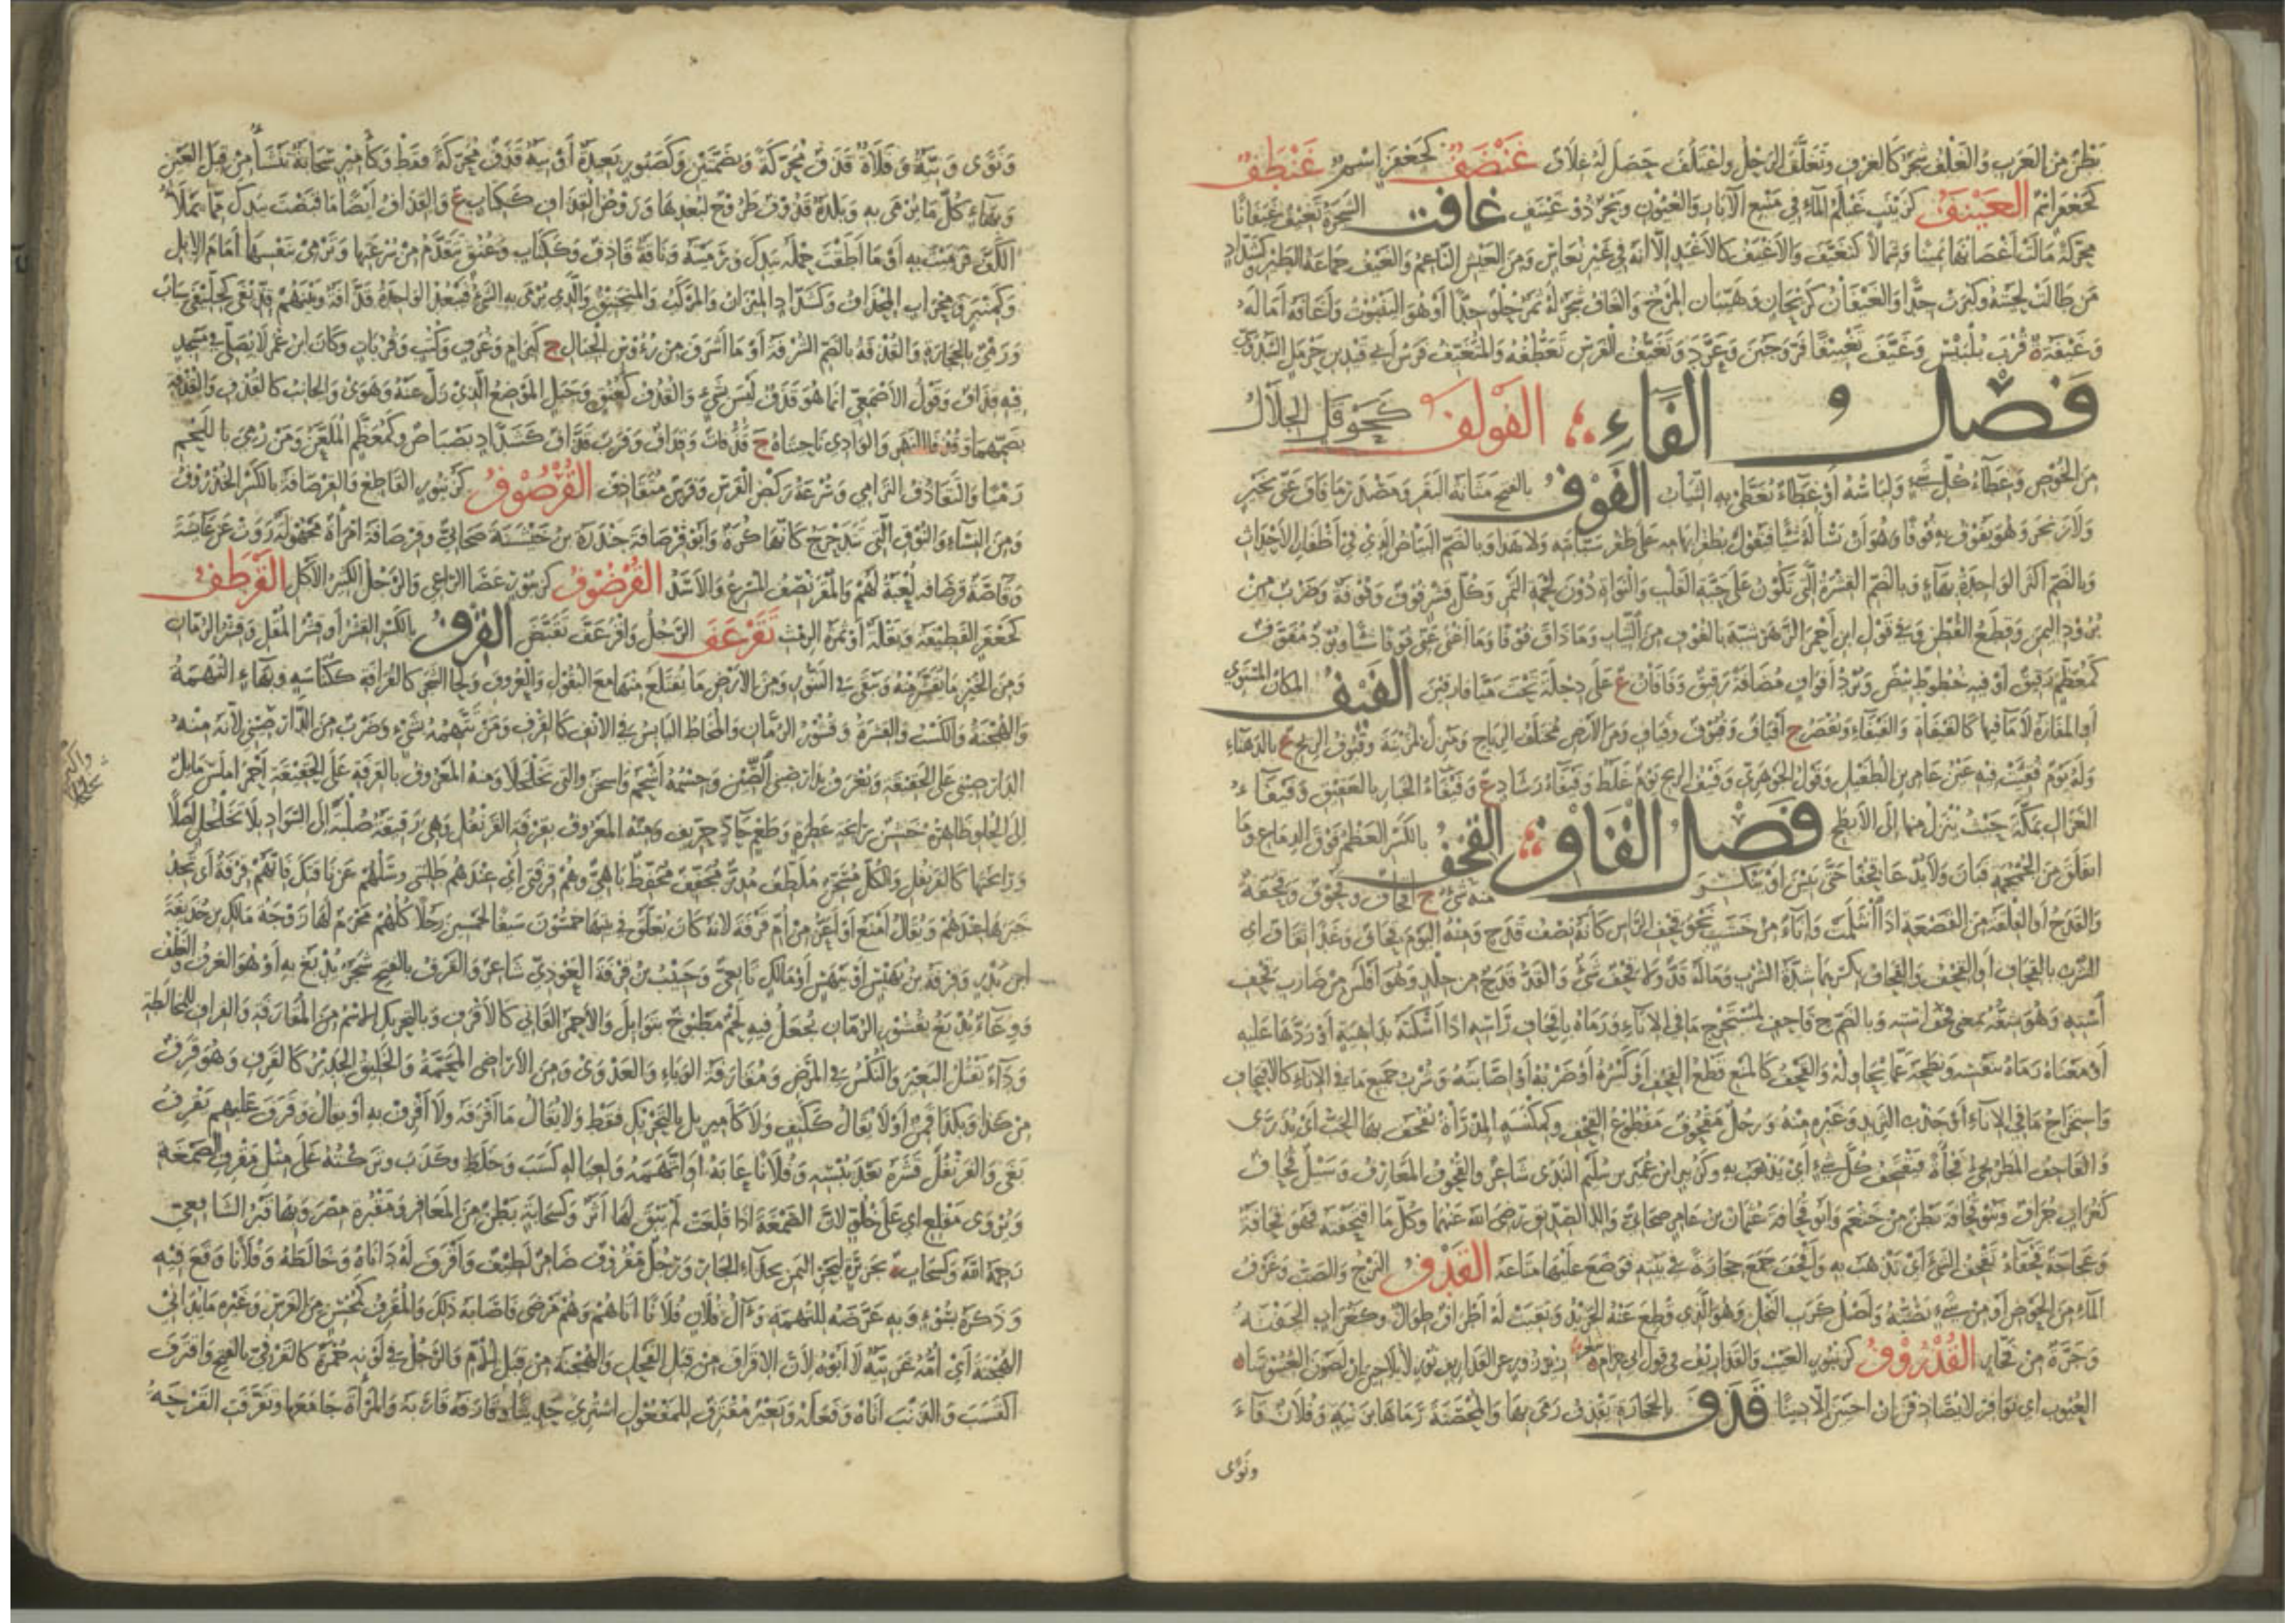 بَطْنٌ مِنَ العَرَبِ وَالغَلْفُ شَجَرٌ كَالغَرْفِ وَتَغَلَّفَ الرَّجُلُ وَاغْتَلَفَ حَصَلَ لَهُ غِلَافٌ غَنْضَفٌ كَجَعْفَرٍ اسْمٌ غَنْطَفٌ
كَجَعْفَرٍ اسْمٌ الغَيْنَفُ كَزَيْنَبٍ غَيْلَمُ المَاءِ فِي مَنْبَعِ الآبَارِ وَالعُيُونِ وَبَحْرٌ ذُو غَيْنَفٍ غافت الشَّجَرَةُ تَغِيفُ غَيَفَانًا
مُحَرَّكَةً مَالَتْ أَغْصَانُهَا يَمِينًا وَشِمَالًا كَتَغَيَّفَ وَالأَغْيَفُ كَالأَغْيَدِ إِلَّا أَنَّهُ فِي غَيْرِ نُعَاسٍ وَمِنَ العَيْشِ النَّاعِمُ وَالغَيْفُ جَمَاعَةُ الطَّيْرِ وَكَشَدَّادٍ
مَنْ طَالَتْ لِحْيَتُهُ وَكَبُرَتْ جِدًّا وَالغَيْفَانُ كَرَيْحَانٍ وَهَيَّبَانٍ المَرْخُ وَالغَافُ شَجَرٌ لَهُ ثَمَرٌ حُلْوٌ جِدًّا أَوْ هُوَ اليَنْبُوتُ وَأَغَافَهُ أَمَالَهُ
وَغَيْفَةُ ة قُرْبَ بُلْبَيْسَ وَغَيَّفَ تَغْيِيفًا فَرَّ وَجَبُنَ وَعَرَّدَ وَتَغَيُّفُ الفَرَسِ تَعَطُّفُهُ وَالمُتَغَيِّفُ فَرَسُ أَبِي فَيْدِ بْنِ حَرْمَلٍ السَّدُوسِيِّ
فَصْلُ الفَاءِ الفَوْلَفُ كَحَوْقَلٍ الجِلَالُ
مِنَ الخُوصِ وَغِطَاءُ كُلِّ شَيْءٍ وَلِبَاسُهُ أَوْ غِطَاءٌ تُغَطَّى بِهِ الثِّيَابُ الفَوْفُ بِالفَتْحِ مَثَانَةُ البَقَرِ وَمَصْدَرُ مَا فَافَ عَنِّي بِخَيْرٍ
وَلَا زَنْجَرَ وَهُوَ يَفُوفُ بِهِ فَوْفًا وَهُوَ أَنْ تَسْأَلَهُ شَيْئًا فَيَقُولَ بِظُفْرِ إِبْهَامِهِ عَلَى ظُفْرِ سَبَّابَتِهِ وَلَا هَذَا وَبِالضَّمِّ البَيَاضُ الَّذِي فِي أَظْفَارِ الأَحْدَاثِ
وَبِالضَّمِّ أَكْثَرُ الوَاحِدَةُ بِهَاءٍ وَبِالضَّمِّ القِشْرَةُ الَّتِي تَكُونُ عَلَى حَبَّةِ القَلْبِ وَالنَّوَاةِ دُونَ لَحْمَةِ التَّمْرِ وَكُلُّ قِشْرٍ فُوفٌ وَفُوفَةٌ وَضَرْبٌ مِنْ
بُرُودِ اليَمَنِ وَقِطَعُ القُطْنِ وَفِي قَوْلِ ابْنِ أَحْمَرَ الزَّهْرُ شَبَّهَهُ بِالفُوفِ مِنَ الثِّيَابِ وَمَا ذَاقَ فُوفًا وَمَا أَغْنَى عَنِّي فُوفًا شَيْئًا وَبُرْدٌ مُفَوَّفٌ
كَمُعَظَّمٍ رَقِيقٌ أَوْ فِيهِ خُطُوطٌ بِيضٌ وَبُرْدُ أَفْوَافٍ مُضَافَةً رَقِيقٌ وَفَافَانُ ع عَلَى دِجْلَةَ تَحْتَ مَيَّافَارِقِينَ الفَيْفُ المَكَانُ المُسْتَوِي
أَوِ المَفَازَةُ لَا مَاءَ فِيهَا كَالفَيْفَاةِ وَالفَيْفَاءِ وَيُقْصَرُ ج أَفْيَافٌ وَفُيُوفٌ وَفَيَافٍ وَمِنَ الأَرْضِ مُخْتَلَفُ الرِّيَاحِ وَمَنْزِلٌ لِمُزَيْنَةَ وَفَيْفُ الرِّيحِ ع بِالدَّهْنَاءِ
وَلَهُ يَوْمٌ فُقِئَتْ فِيهِ عَيْنُ عَامِرِ بْنِ الطُّفَيْلِ وَقَوْلُ الجَوْهَرِيِّ وَفَيْفُ الرِّيحِ يَوْمٌ غَلَطٌ وَفَيْفَاءُ رَشَادٍ ع وَفَيْفَاءُ الخَبَارِ بِالعَقِيقِ وَفَيْفَاءُ
الغَزَالِ بِمَكَّةَ حَيْثُ يُنْزَلُ مِنْهَا إِلَى الأَبْطَحِ فَصْلُ القَافِ القِحْفُ بِالكَسْرِ العَظْمُ فَوْقَ الدِّمَاغِ وَمَا
انْفَلَقَ مِنَ الجُمْجُمَةِ فَبَانَ وَلَا يُدْعَى قِحْفًا حَتَّى يَبِينَ أَوْ يَنْكَسِرَ مِنْهُ شَيْءٌ ج أَقْحَافٌ وَقُحُوفٌ وَقِحَفَةٌ
وَالقَدَحُ أَوِ الفِلْقَةُ مِنَ القَصْعَةِ إِذَا انْثَلَمَتْ وَإِنَاءٌ مِنْ خَشَبٍ نَحْوُ قِحْفِ الرَّأْسِ كَأَنَّهُ نِصْفُ قَدَحٍ وَمِنْهُ اليَوْمَ قِحَافٌ وَغَدًا نِقَافٌ أَيِ
الشُّرْبُ بِالقِحَافِ أَوِ القِحْفُ وَالقِحَافُ بِكَسْرِهِمَا شِدَّةُ الشُّرْبِ وَمَا لَهُ قَدٌّ وَلَا قِحْفٌ شَيْءٌ وَالقَدُّ قَدَحٌ مِنْ جِلْدٍ وَهُوَ أَفْلَسُ مِنْ ضَارِبِ قِحْفِ
اسْتِهِ وَهُوَ شِقُّهُ بِمَعْنَى لِحْفِ اسْتِهِ وَبِالضَّمِّ ج قَاحِفٌ لِمُسْتَخْرِجِ مَا فِي الإِنَاءِ وَرَمَاهُ بِأَقْحَافِ رَأْسِهِ إِذَا أَسْكَتَهُ بِدَاهِيَةٍ أَوْرَدَهَا عَلَيْهِ
أَوْ مَعْنَاهُ رَمَاهُ بِنَفْسِهِ وَنَطَحَهُ عَمَّا يُحَاوِلُهُ وَالقَحْفُ كَالمَنْعِ قَطْعُ القِحْفِ أَوْ كَسْرُهُ أَوْ ضَرْبُهُ أَوْ إِصَابَتُهُ وَشُرْبُ جَمِيعِ مَا فِي الإِنَاءِ كَالاقْتِحَافِ
وَاسْتِخْرَاجُ مَا فِي الإِنَاءِ أَوْ جَذْبُ الثَّرِيدِ وَغَيْرِهِ مِنْهُ وَرَجُلٌ مَقْحُوفٌ مَقْطُوعُ القِحْفِ وَكَمِكْنَسَةٍ المِذْرَاةُ تُقْحَفُ بِهَا الحَبُّ أَيْ يُذَرَّى
وَالقَاحِفُ المَطَرُ يَجِيءُ فَجْأَةً فَيَقْتَحِفُ كُلَّ شَيْءٍ أَيْ يَذْهَبُ بِهِ وَكَزُبَيْرٍ ابْنُ عُمَيْرِ بْنِ سُلَيْمٍ النَّدِيُّ شَاعِرٌ وَالقُحُوفُ المَغَارِفُ وَسَيْلٌ قُحَافٌ
كَغُرَابٍ جُرَافٌ وَبَنُو قُحَافَةَ بَطْنٌ مِنْ خَثْعَمَ وَأَبُو قُحَافَةَ عُثْمَانُ بْنُ عَامِرٍ صَحَابِيٌّ وَالِدُ الصِّدِّيقِ رَضِيَ اللهُ عَنْهُمَا وَكُلُّ مَا اقْتَحَفْتَهُ فَهُوَ قُحَافَةٌ
وَعَجَاجَةٌ قَحْفَاءُ تَقْحَفُ الشَّيْءَ أَيْ تَذْهَبُ بِهِ وَأَقْحَفَ جَمَعَ حِجَارَةً فِي بَيْتِهِ فَوَضَعَ عَلَيْهَا مَتَاعَهُ القَدْفُ النَّزْحُ وَالصَّبُّ وَغَرْفُ
المَاءِ مِنَ الحَوْضِ أَوْ مِنْ شَيْءٍ تَصُبُّهُ وَأَصْلُ كَرَبِ النَّخْلِ وَهُوَ الَّذِي قُطِعَ عَنْهُ الجَرِيدُ وَبَقِيَتْ لَهُ أَطْرَافٌ طِوَالٌ وَكَغُرَابٍ الجَفْنَةُ
وَجَرَّةٌ مِنْ فَخَّارٍ القُذْرُوفُ كَزُنْبُورٍ العَيْبُ وَالقَذَارِيفُ فِي قَوْلِ أَبِي حِزَامٍ
العُيُوبُ أَيْ نَوَافِرُ قَذَفَ بِالحِجَارَةِ يَقْذِفُ رَمَى بِهَا وَالمُحْصَنَةَ رَمَاهَا بِزَنْيَةٍ وَفُلَانٌ قَاءَ
وَنَوًى
وَنَوًى وَنِيَّةٌ وَفَلَاةٌ قَذَفٌ مُحَرَّكَةً وَبِضَمَّتَيْنِ وَكَصَبُورٍ بَعِيدَةٌ أَوْ نِيَّةٌ قَذَفٌ مُحَرَّكَةً فَقَطْ وَكَأَمِيرٍ سَحَابَةٌ تَنْشَأُ مِنْ قِبَلِ العَيْنِ
وَبِهَاءٍ كُلُّ مَا يُرْمَى بِهِ وَبَلْدَةٌ قَذُوفٌ طَرُوحٌ لِبُعْدِهَا وَرَوْضُ القِذَافِ كَكِتَابٍ ع وَالقِذَافُ أَيْضًا مَا قَبَضْتَ بِيَدِكَ مِمَّا يَمْلَأُ
الكَفَّ فَرَمَيْتَ بِهِ أَوْ مَا أَطَقْتَ حَمْلَهُ بِيَدِكَ وَرَمَيْتَهُ وَنَاقَةٌ قَاذِفٌ وَكَكِتَابٍ وَعُنُقٍ تَتَقَدَّمُ مِنْ سُرْعَتِهَا وَتَرْمِي بِنَفْسِهَا أَمَامَ الإِبِلِ
وَكَمِنْبَرٍ وَمِحْرَابٍ المِجْذَافُ وَكَشَدَّادٍ المِيزَانُ وَالمَرْكَبُ وَالمَنْجَنِيقُ وَالَّذِي يُرْمَى بِهِ الشَّيْءُ فَيَبْعُدُ الوَاحِدَةُ قَذَّافَةٌ وَبَيْنَهُمْ قِذِّيفَى كَخِلِّيفَى سِبَابٌ
وَرَمْيٌ بِالحِجَارَةِ وَالقُذْفَةُ بِالضَّمِّ الشُّرْفَةُ أَوْ مَا أَشْرَفَ مِنْ رُؤُوسِ الجِبَالِ ج كَبِرَامٍ وَغُرَفٍ وَكُتُبٍ وَقُرُبَاتٍ وَكَانَ ابْنُ عُمَرَ لَا يُصَلِّي فِي مَسْجِدٍ
فِيهِ قِذَافٌ وَقَوْلُ الأَصْمَعِيِّ إِنَّمَا هُوَ قُذَفٌ لَيْسَ بِشَيْءٍ وَالقُذُفُ كَعُنُقٍ وَجَبَلٍ المَوْضِعُ الَّذِي زَلَّ عَنْهُ وَهَوَى وَالجَانِبُ كَالقُذْفِ وَالقُذْفَةِ
بِضَمِّهِمَا وَقُذُفَا النَّهْرِ وَالوَادِي نَاحِيَتَاهُ ج قُذُفَاتٌ وَقِذَافٌ وَقَرَبٌ قَذَّافٌ كَشَدَّادٍ بَصْبَاصٌ وَكَمُعَظَّمٍ المُلَعَّنُ وَمَنْ رُمِيَ بِاللَّحْمِ
رَمْيًا وَالتَّقَاذُفُ التَّرَامِي وَسُرْعَةُ رَكْضِ الفَرَسِ وَفَرَسٌ مُتَقَاذِفٌ القُرْصُوفُ كَزُنْبُورٍ القَاطِعُ وَالقِرْصَافَةُ بِالكَسْرِ الخُذْرُوفُ
وَمِنَ النِّسَاءِ وَالنُّوقِ الَّتِي تَتَدَحْرَجُ كَأَنَّهَا كُرَةٌ وَأَبُو قِرْصَافَةَ جَنْدَرَةُ بْنُ خَيْشَنَةَ صَحَابِيٌّ وَقِرْصَافَةُ امْرَأَةٌ مَجْهُولَةٌ رَوَتْ عَنْ عَائِشَةَ
وَقَاصَّةُ قِرْصَافَةٍ لُعْبَةٌ لَهُمْ وَالمُقْرَنْصِفُ المُسْرِعُ وَالأَسَدُ القُرْضُوفُ كَزُنْبُورٍ عَصَا الرَّاعِي وَالرَّجُلُ الكَثِيرُ الأَكْلِ القَرْطَفُ
كَجَعْفَرٍ القَطِيفَةُ وَبَقْلَةٌ أَوْ ثَمَرَةُ الرِّمْثِ تَقَرْعَفَ الرَّجُلُ وَاقْرَعَفَّ تَقَبَّضَ القِرْفُ بِالكَسْرِ القِشْرُ أَوْ قِشْرُ المُقْلِ وَقِشْرُ الرُّمَّانِ
وَمِنَ الخُبْزِ مَا يُقْشَرُ مِنْهُ وَيَبْقَى فِي التَّنُّورِ وَمِنَ الأَرْضِ مَا يُقْتَلَعُ مِنْهَا مَعَ البُقُولِ وَالعُرُوقِ وَلِحَا الشَّجَرِ كَالقُرَافَةِ كَكُنَاسَةٍ وَبِهَاءٍ التُّهَمَةُ
وَالهُجْنَةُ وَالكَسْبُ وَالقِشْرَةُ وَقُشُورُ الرُّمَّانِ وَالمُخَاطُ اليَابِسُ فِي الأَنْفِ كَالقِرْفِ وَمَنْ تَتَّهِمُهُ بِشَيْءٍ وَضَرْبٌ مِنَ الدَّارْصِينِيِّ لِأَنَّ مِنْهُ
الدَّارَ صِينِي عَلَى الحَقِيقَةِ وَيُعْرَفُ بِدَارِصِينِي الصِّينِ وَجِسْمُهُ أَشْحَمُ وَأَسْخَنُ وَأَكْثَرُ تَخَلْخُلًا وَمِنْهُ المَعْرُوفُ بِالقِرْفَةِ عَلَى الحَقِيقَةِ أَحْمَرُ أَمْلَسُ مَائِلٌ
إِلَى الحُلْوِ ظَاهِرُهُ خَشِنٌ بِرَائِحَةٍ عَطِرَةٍ وَطَعْمٍ حَادٍّ حِرِّيفٍ وَمِنْهُ المَعْرُوفُ بِقِرْفَةِ القَرَنْفُلِ وَهِيَ رَقِيقَةٌ صُلْبَةٌ إِلَى السَّوَادِ بِلَا تَخَلْخُلٍ أَصْلًا
وَرَائِحَتُهَا كَالقَرَنْفُلِ وَالكُلُّ مُسَخِّنٌ مُلَطِّفٌ مُدِرٌّ مُجَفِّفٌ مُحَفِّظٌ بَاهِيٌّ وَهُمْ قِرْفَتِي أَيْ عِنْدَهُمْ طَلِبَتِي وَسَلْهُمْ عَنْ نَاقَتِكَ فَإِنَّهُمْ قِرْفَةٌ أَيْ تَجِدُ
خَبَرَهَا عِنْدَهُمْ وَيُقَالُ أَمْنَعُ أَوْ أَعَزُّ مِنْ أُمِّ قِرْفَةَ لِأَنَّهُ كَانَ يُعَلَّقُ فِي بَيْتِهَا خَمْسُونَ سَيْفًا لِخَمْسِينَ رَجُلًا كُلُّهُمْ مَحْرَمٌ لَهَا زَوْجَةُ مَالِكِ بْنِ حُذَيْفَةَ
ابْنِ بَدْرٍ وَقِرْفَةُ بْنُ بُهَيْسٍ أَوْ بَيْهَسٍ أَوْ مَالِكٍ تَابِعِيٌّ وَحَبِيبُ بْنُ قِرْفَةَ العَوْذِيُّ شَاعِرٌ وَالقَرْفُ بِالفَتْحِ شَجَرٌ يُدْبَغُ بِهِ أَوْ هُوَ الغَرْفُ وَالغَلْفُ
وَوِعَاءٌ يُدْبَغُ بِقُشُورِ الرُّمَّانِ يُجْعَلُ فِيهِ لَحْمٌ مَطْبُوخٌ بِتَوَابِلَ وَالأَحْمَرُ القَانِي كَالأَقْرَفِ وَبِالتَّحْرِيكِ الاسْمُ مِنَ المُقَارَفَةِ وَالقِرَافُ لِلْمُخَالَطَةِ
وَدَاءٌ يَقْتُلُ البَعِيرَ وَالنُّكْسُ فِي المَرَضِ وَمُقَارَفَةُ الوَبَاءِ وَالعَدْوَى وَمِنَ الأَرَاضِي المُحَمَّةُ وَالخَلِيقُ الجَدِيرُ كَالقَرِفِ وَهُوَ قَرَفٌ
مِنْ كَذَا وَبِكَذَا قَمِنٌ أَوْ لَا يُقَالُ كَكَتِفٍ وَلَا كَأَمِيرٍ بَلْ بِالتَّحْرِيكِ فَقَطْ وَلَا يُقَالُ مَا أَقْرَفَهُ وَلَا أَقْرِفْ بِهِ أَوْ يُقَالُ وَقَرَفَ عَلَيْهِمْ يَقْرِفُ
بَغَى وَالقَرَنْفُلَ قَشَرَهُ بَعْدَ يُبْسِهِ وَفُلَانًا عَابَهُ أَوِ اتَّهَمَهُ وَلِعِيَالِهِ كَسَبَ وَخَلَطَ وَكَذَبَ وَتَرَكْتُهُ عَلَى مِثْلِ مَقْرِفِ الصَّمْغَةِ
وَيُرْوَى مَقْلَعِ أَيْ عَلَى خُلُوٍّ لِأَنَّ الصَّمْغَةَ إِذَا قُلِعَتْ لَمْ يَبْقَ لَهَا أَثَرٌ وَكَسَحَابَةٍ بَطْنٌ مِنَ المَعَافِرِ وَمَقْبُرَةُ مِصْرَ وَبِهَا قَبْرُ الشَّافِعِيِّ
رَحِمَهُ اللهُ وَكَسَحَابٍ ة بِجَزِيرَةٍ لِبَحْرِ اليَمَنِ بِحِذَاءِ الجَارِ وَرَجُلٌ مَقْرُوفٌ ضَامِرٌ لَطِيفٌ وَأَقْرَفَ لَهُ دَانَاهُ وَخَالَطَهُ وَفُلَانًا وَقَعَ فِيهِ
وَذَكَرَهُ بِسُوءٍ وَبِهِ عَرَّضَهُ لِلتُّهَمَةِ وَآلُ فُلَانٍ فُلَانًا أَتَاهُمْ وَهُمْ مَرْضَى فَأَصَابَهُ ذَلِكَ وَالمُقْرِفُ كَمُحْسِنٍ مِنَ الفَرَسِ وَغَيْرِهِ مَا يُدَانِي
الهُجْنَةَ أَيْ أُمُّهُ عَرَبِيَّةٌ لَا أَبُوهُ لِأَنَّ الإِقْرَافَ مِنْ قِبَلِ الفَحْلِ وَالهُجْنَةَ مِنْ قِبَلِ الأُمِّ وَالرَّجُلُ فِي لَوْنِهِ حُمْرَةٌ كَالقَرْفِيِّ بِالفَتْحِ وَاقْتَرَفَ
اكْتَسَبَ وَالذَّنْبَ أَتَاهُ وَفَعَلَهُ وَبَعِيرٌ مُقْتَرَفٌ لِلْمَفْعُولِ اشْتُرِيَ حَدِيثًا وَقَارَفَهُ قَارَبَهُ وَالمَرْأَةَ جَامَعَهَا وَتَقَرَّفَتِ القَرْحَةُ